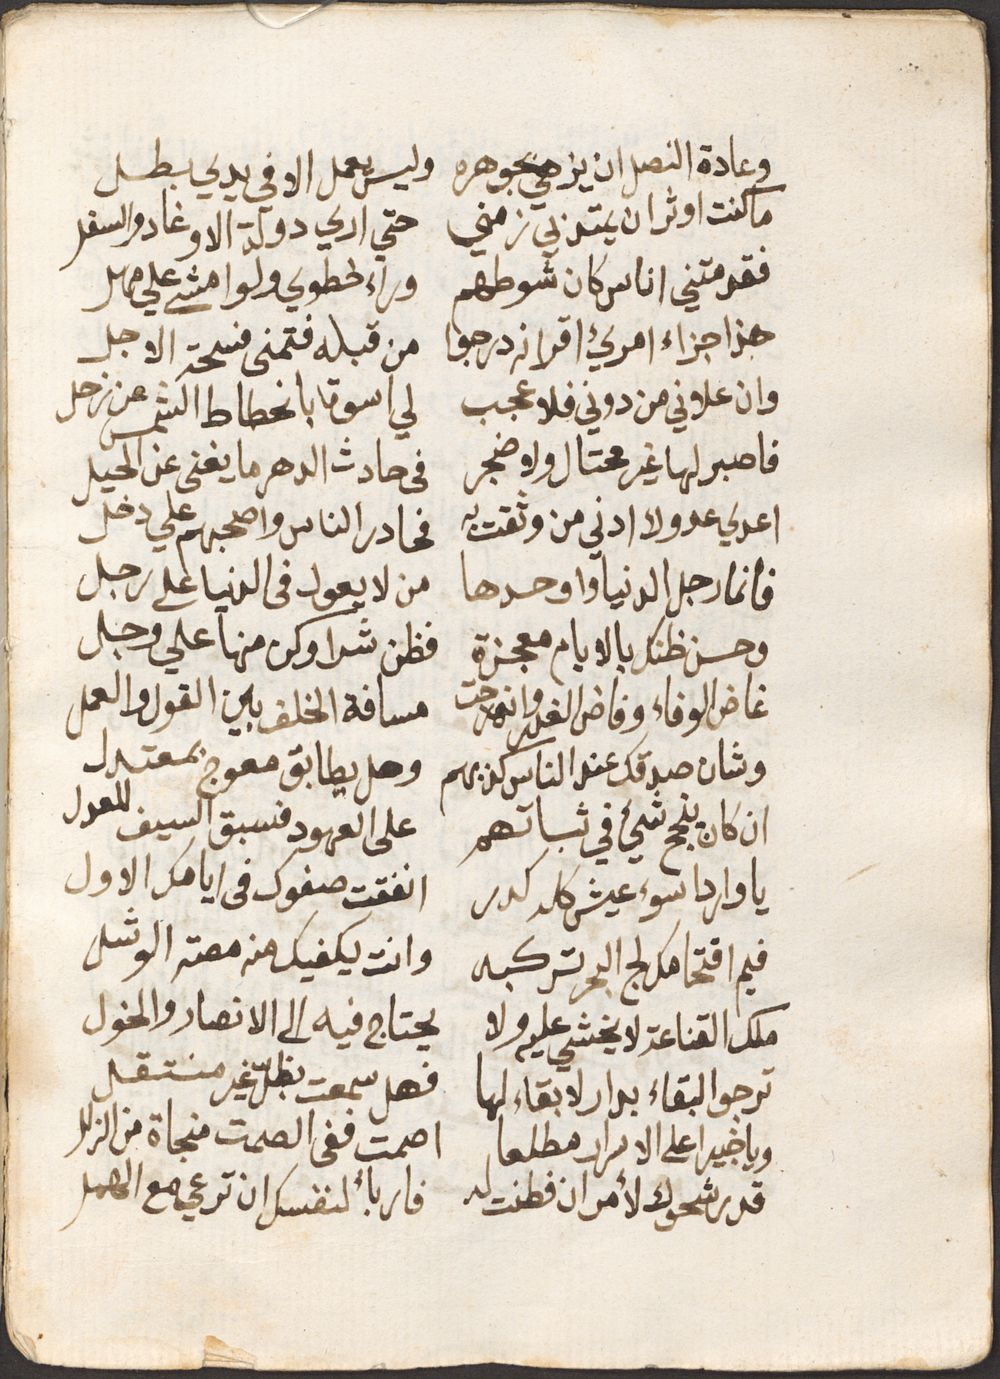 وعادة النصل ان يزهي بجوهره وليس يعمل الا في يدي بطل
ما كنت اوثر ان يمتد بي زمني حتي اري دولة الاوغاد والسفل
فقدمتني اناس كان شوطهم وراء خطوي ولو امشي علي مهل
هذا جزاء امرئ اقرانه درجوا من قبله فتمنى فسحة الاجل
وان علاني من دوني فلا عجب لي اسوة بانحطاط الشمس عن زحل
فاصبر لها غير محتال ولا ضجر في حادث الدهر ما يغنى عن الحيل
اعدي عدولا ادني من وثقت به فحادر الناس واصحبهم علي دخل
فانما رجل الدنيا واوحدها من لا يعول في الدنيا على رجل
وحسن ظنك بالايام معجزة فظن شرا وكن منها علي وجل
غاض الوفاء وفاض الغدر وانفرجت مسافة الخلف بين القول والعمل
وشان صدقك عند الناس كذبهم وهل يطابق معوج بمعتدل
ان كان ينجح شئ في ثباتهم على العهود فسبق السيف للعدل
يا واردا سوء عيش كله كدر انفقت صفوك في ايامك الاول
فيم اقتحامك لج البحر تركبه وانت يكفيك منه مصة الوشل
ملك القناعة لا يخشي عليه ولا يحتاج فيه الى الانصار والخول
ترجوا البقاء بدار لا بقاء لها فهل سمعت بظل غير منتقل
ويا خبيرا على الاسرار مطلعا اصمت ففى الصمت منجاة من الزلل
قد رشحوك لأمر ان فطنت له فاربأ لنفسك ان ترعي مع الهمل